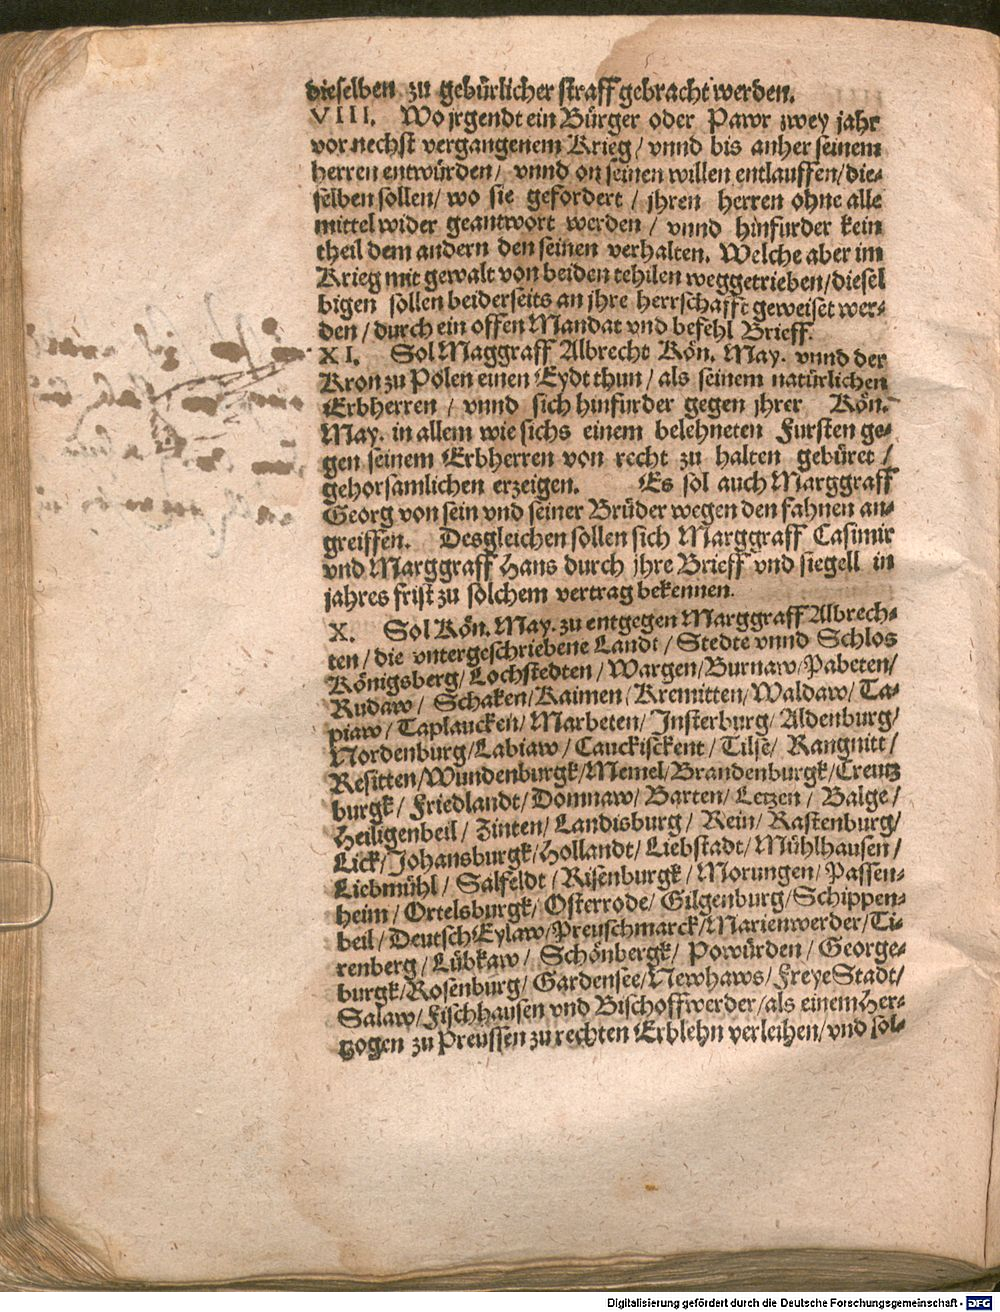 dieselben zu gebürlicher straff gebracht werden.
VIII. Wo jrgendt ein Bürger oder Pawr zwey jahr
vor nechst vergangenem Krieg / vnnd bis anher seinem
herren entwürden / vnnd on seinen willen entlauffen / die-
selben sollen / wo sie gefordert / jhren herren ohne alle
mittel wider geantwort werden / vnnd hinfurder kein
theil dem andern den seinen verhalten. Welche aber im
Krieg mit gewalt von beiden tehilen weggetrieben / diesel
bigen sollen beiderseits an jhre herrschafft geweiset wer-
den / durch ein offen Mandat vnd befehl Brieff.
XI. Sol Maggraff Albrecht Kön. May. vnnd der
Kron zu Polen einen Eydt thun / als seinem natürlichen
Erbherren / vnnd sich hinfurder gegen jhrer Kön.
May. in allem wie sichs einem belehneten Fursten ge-
gen seinem Erbherren von recht zu halten gebüret /
gehorsamlichen erzeigen. Es sol auch Marggraff
Georg von sein vnd seiner Brüder wegen den fahnen an-
greiffen. Desgleichen sollen sich Marggraff Casimir
vnd Marggraff Hans durch jhre Brieff vnd siegell in
jahres frist zu solchem vertrag bekennen.
X. Sol Kön. May. zu entgegen Marggraff Albrech-
ten / die vntergeschriebene Landt / Stedte vnnd Schlos
Königsberg / Lochstedten / Wargen / Burnaw / Pabeten /
Rudaw / Schaken / Kaimen / Kremitten / Waldaw / Ta-
piaw / Taplaucken / Marbeten / Insterburg / Aldenburg /
Nordenburg / Labiaw / Cauckisckent / Tilse / Rangnitt /
Resitten / Wundenburgk / Memel / Brandenburgk / Creutz
burgk / Friedlandt / Domnaw / Barten / Letzen / Balge /
Heiligenbeil / Zinten / Landisburg / Rein / Rastenburg /
Lick / Johansburgk / Hollandt / Liebstadt / Mühlhausen /
Liebmühl / Salfeldt / Risenburgk / Morungen / Passen-
heim / Ortelsburgk / Osterrode / Gilgenburg / Schippen-
beil / Deutsch Eylaw / Preuschmarck / Marienwerder / Ti-
renberg / Lübkaw / Schönbergk / Powürden / George-
burgk / Rosenburg / Gardensee / Newhaws / Freye Stadt /
Salaw / Fischhausen vnd Bischoffwerder / als einem Her-
tzogen zu Preussen zu rechten Erblehn verleihen / vnd sol-
Digitalisierung gefördert durch die Deutsche Forschungsgemeinschaft - DFG